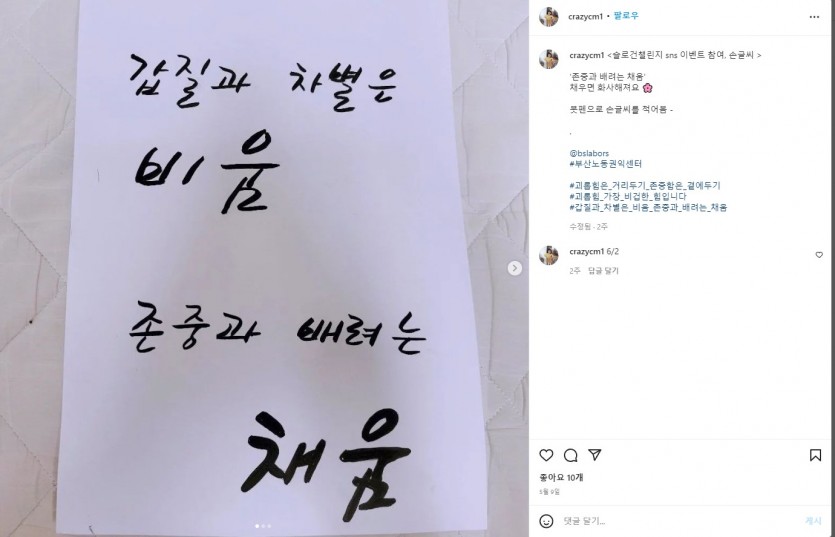 갑질과 차별은
비움
존중과 배려는
채움
crazycm1 • 팔로우
crazycm1 <슬로건챌린지 sns 이벤트 참여, 손글씨 >
'존중과 배려는 채움'
채우면 화사해져요 🌸
붓펜으로 손글씨를 적어봄 -
.
@bslabors
#부산노동권익센터
#괴롭힘은_거리두기_존중함은_곁에두기
#괴롭힘_가장_비겁한_힘입니다
#갑질과_차별은_비움_존중과_배려는_채움
수정됨 · 2주
crazycm1 6/2
2주 답글 달기
좋아요 10개
5월 9일
댓글 달기...
게시